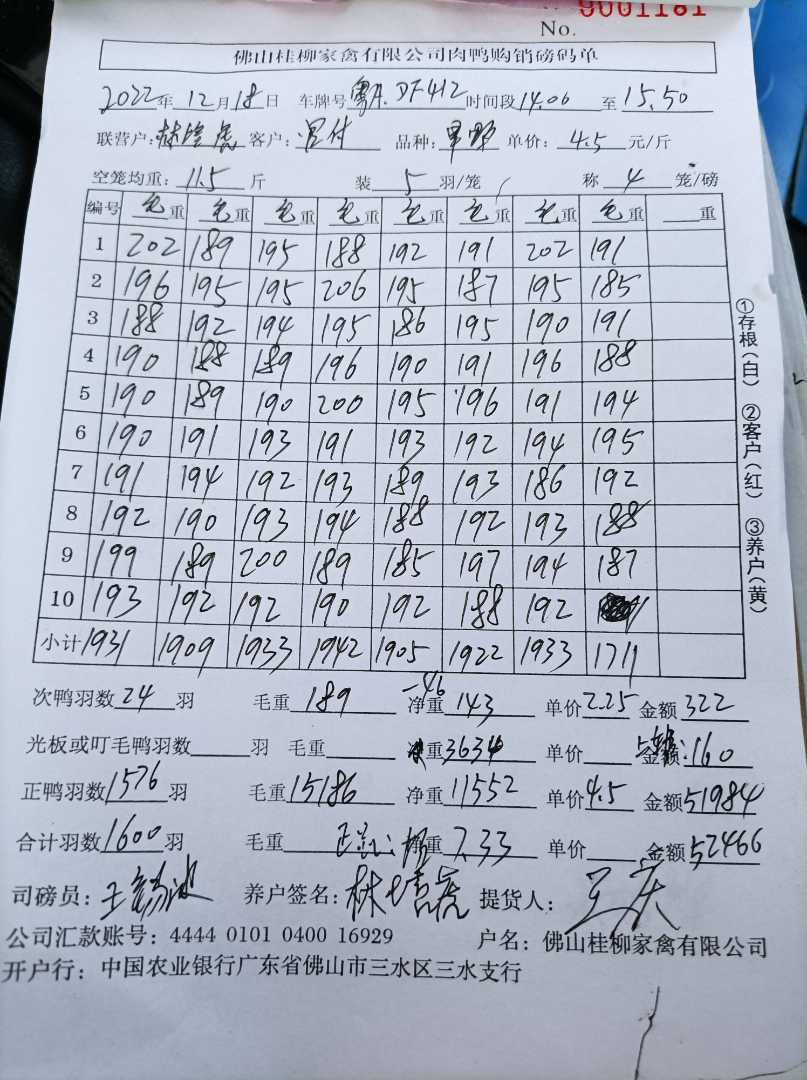 9001181
No.
佛山桂柳家禽有限公司肉鸭购销磅码单
2022年12月18日 车牌号粤A.DF412时间段14.06至15.50
联营户:林培虎 客户: 品种: 单价:4.5元/斤
空笼均重:11.5斤 装5羽/笼 称4笼/磅
编号 毛重 毛重 毛重 毛重 毛重 毛重 毛重 毛重 重
1 202 189 195 188 192 191 202 191
2 196 195 195 206 195 187 195 185
3 188 192 194 195 186 195 190 191
4 190 188 189 196 190 191 196 188
5 190 189 190 200 195 196 191 194
6 190 191 193 191 193 192 194 195
7 191 194 192 193 189 193 186 192
8 192 190 193 194 188 192 193 188
9 199 189 200 189 185 197 194 187
10 193 192 192 190 192 188 192
小计 1931 1909 1933 1942 1905 1922 1933 1711
①存根(白) ②客户(红) ③养户(黄)
次鸭羽数24羽 毛重189 -46 净重143 单价2.25 金额322
光板或叮毛鸭羽数 羽 毛重 重3634 单价 金额:160
正鸭羽数1576羽 毛重15186 净重11552 单价4.5 金额51984
合计羽数1600羽 毛重 净重7.33 单价 金额52466
司磅员: 养户签名:林培虎 提货人:
公司汇款账号:4444 0101 0400 16929 户名:佛山桂柳家禽有限公司
开户行:中国农业银行广东省佛山市三水区三水支行